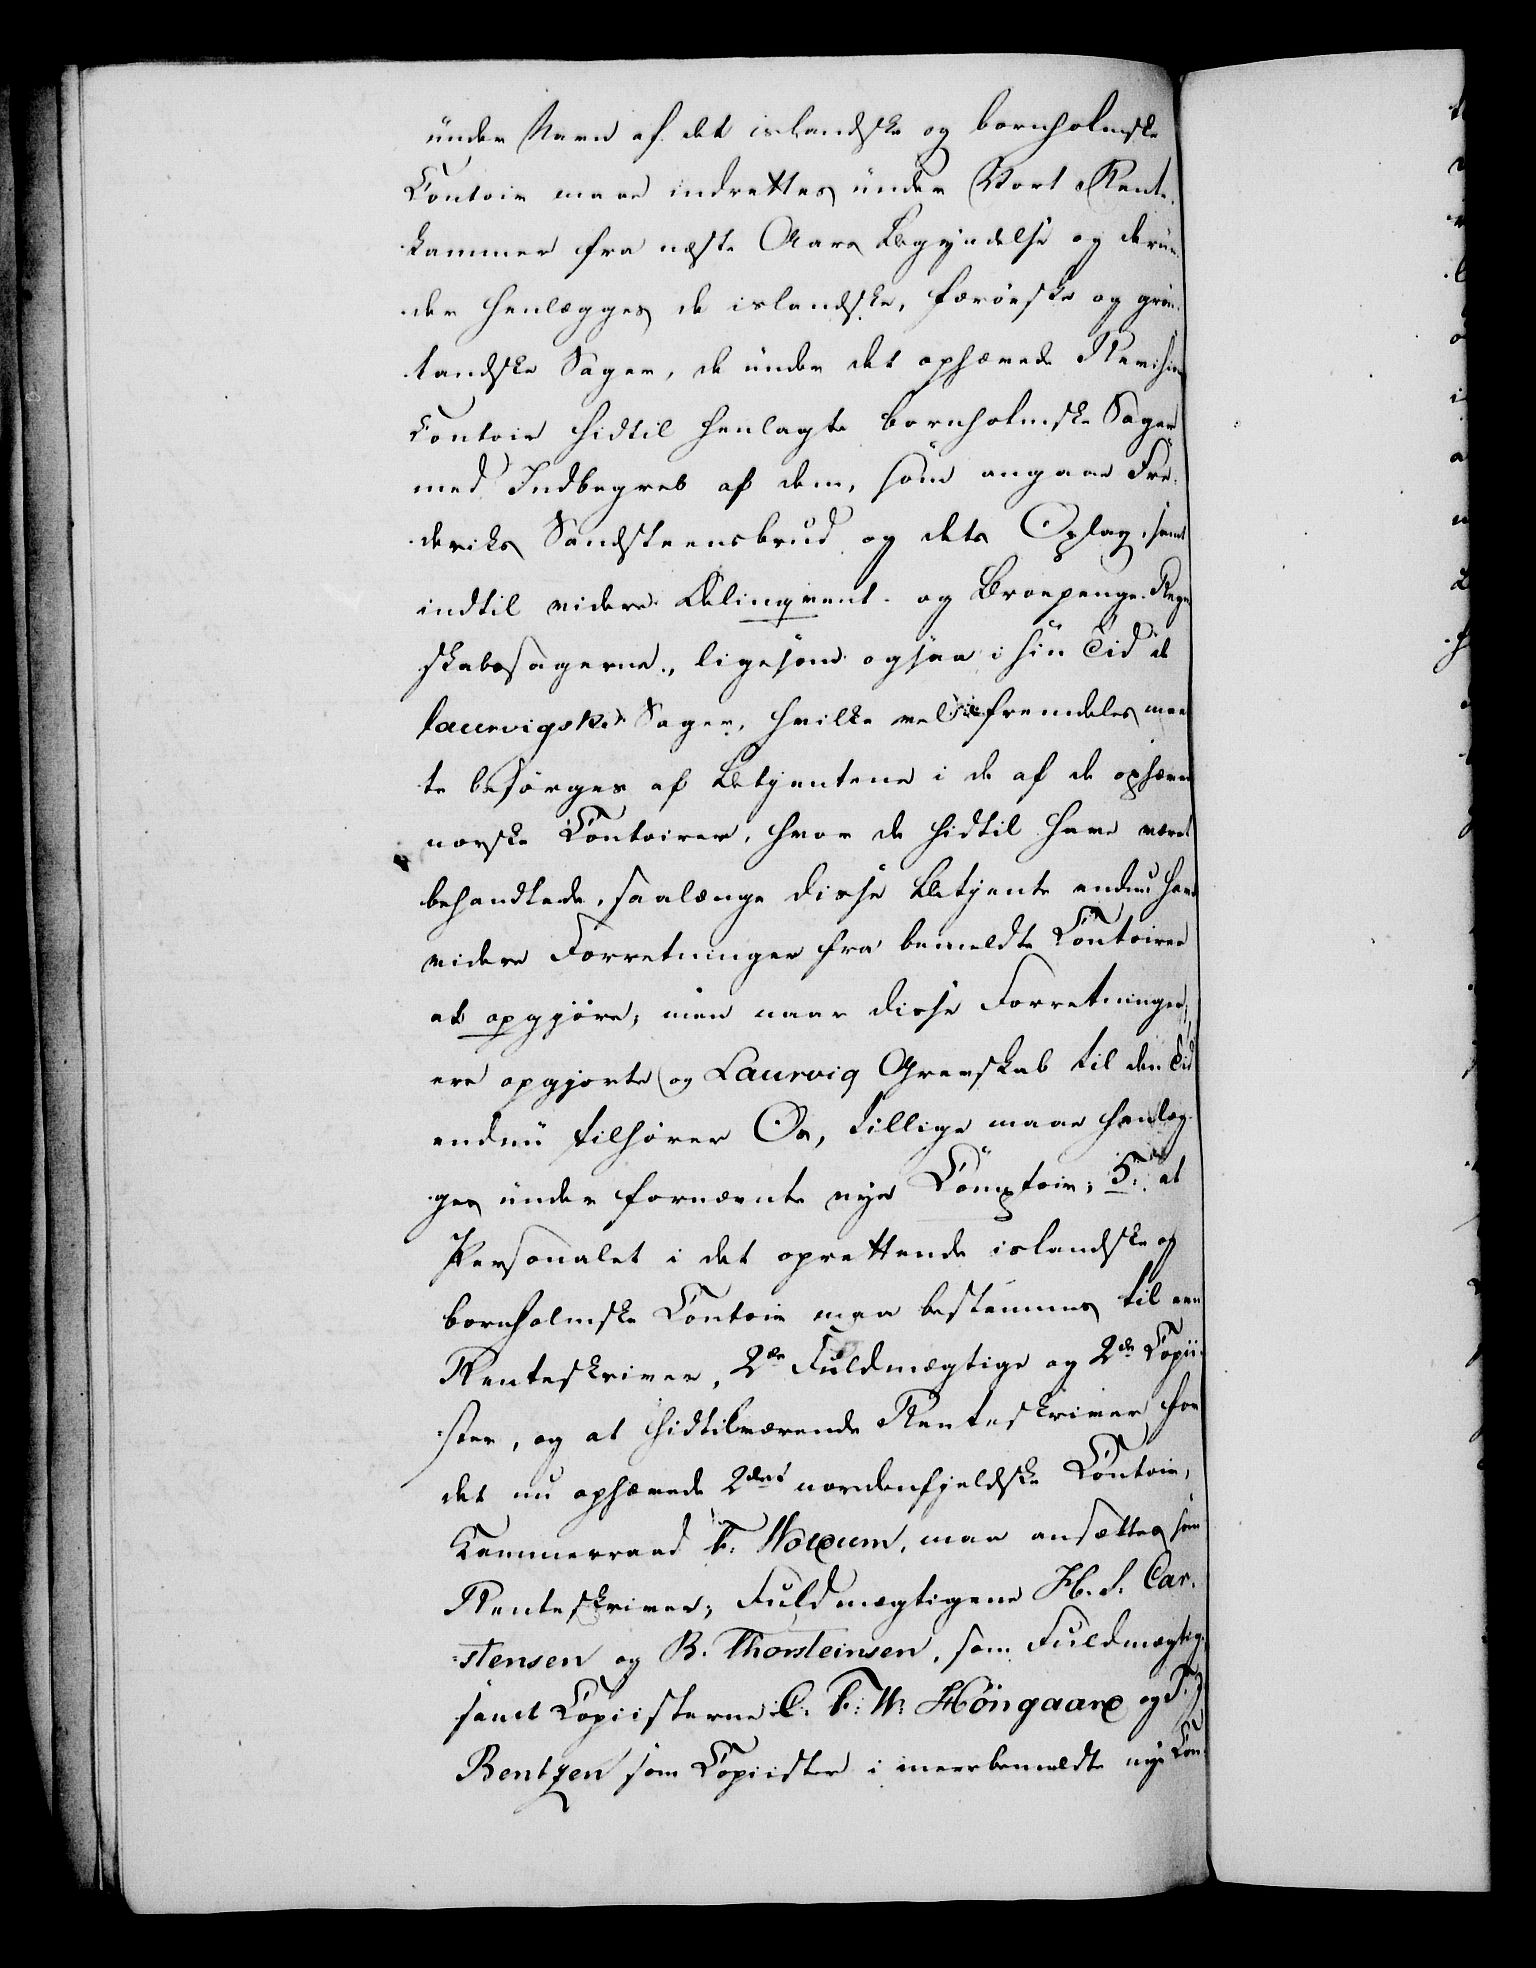 under Navn af det islandske og bornholmske
Contoir maae indrettes under Vort Rente-
kammer fra næste Aars Begyndelse og derun-
der henlægges de islandske, færöeske og grön-
landske Sager, de under det ophævede Revisions
Contoir hidtil henlagte bornholmske Sager
med Indbegreb af dem, som angaae Fre-
deriks Sandsteensbrud og dets Oplag, samt
indtil videre Delinqvent- og Broepenge-Regn-
skabssagerne, ligesom ogsaa i sin Tid de
laurvigske Sager, hvilke vel fremdeles maae
te besörges af Betjentene i de af de ophævede
norske Contoirer, hvor de hidtil have været
behandlede, saalænge disse Betjente endnu have
videre Forretninger fra bemeldte Contoirer
at opgjöre; men naar disse Forretninger,
ere opgjorte (og Laurvig Grevskab til den Tid
endnu tilhörer Os, tillige maae henlæg-
ges under fornævnte nye Comptoir; 5. at
Personalet i det oprettende islandske og
bornholmske Contoir maa bestemmes til een
Renteskriver, 2de Fuldmægtige og 2de Copii-
ster, og at hidtilværende Renteskriver for
det nu ophævede 2det nordenfjeldske Contoir,
Kammerraad T. Woxum, maa ansættes som
Renteskriver; Fuldmægtigene H. S. Car-
stensen og B. Thorsteinsen, som Fuldmægtige
samt Copiisterne C. F. W. Höngaard og
Bentzen som Copiister i meerbemeldte nye Con-